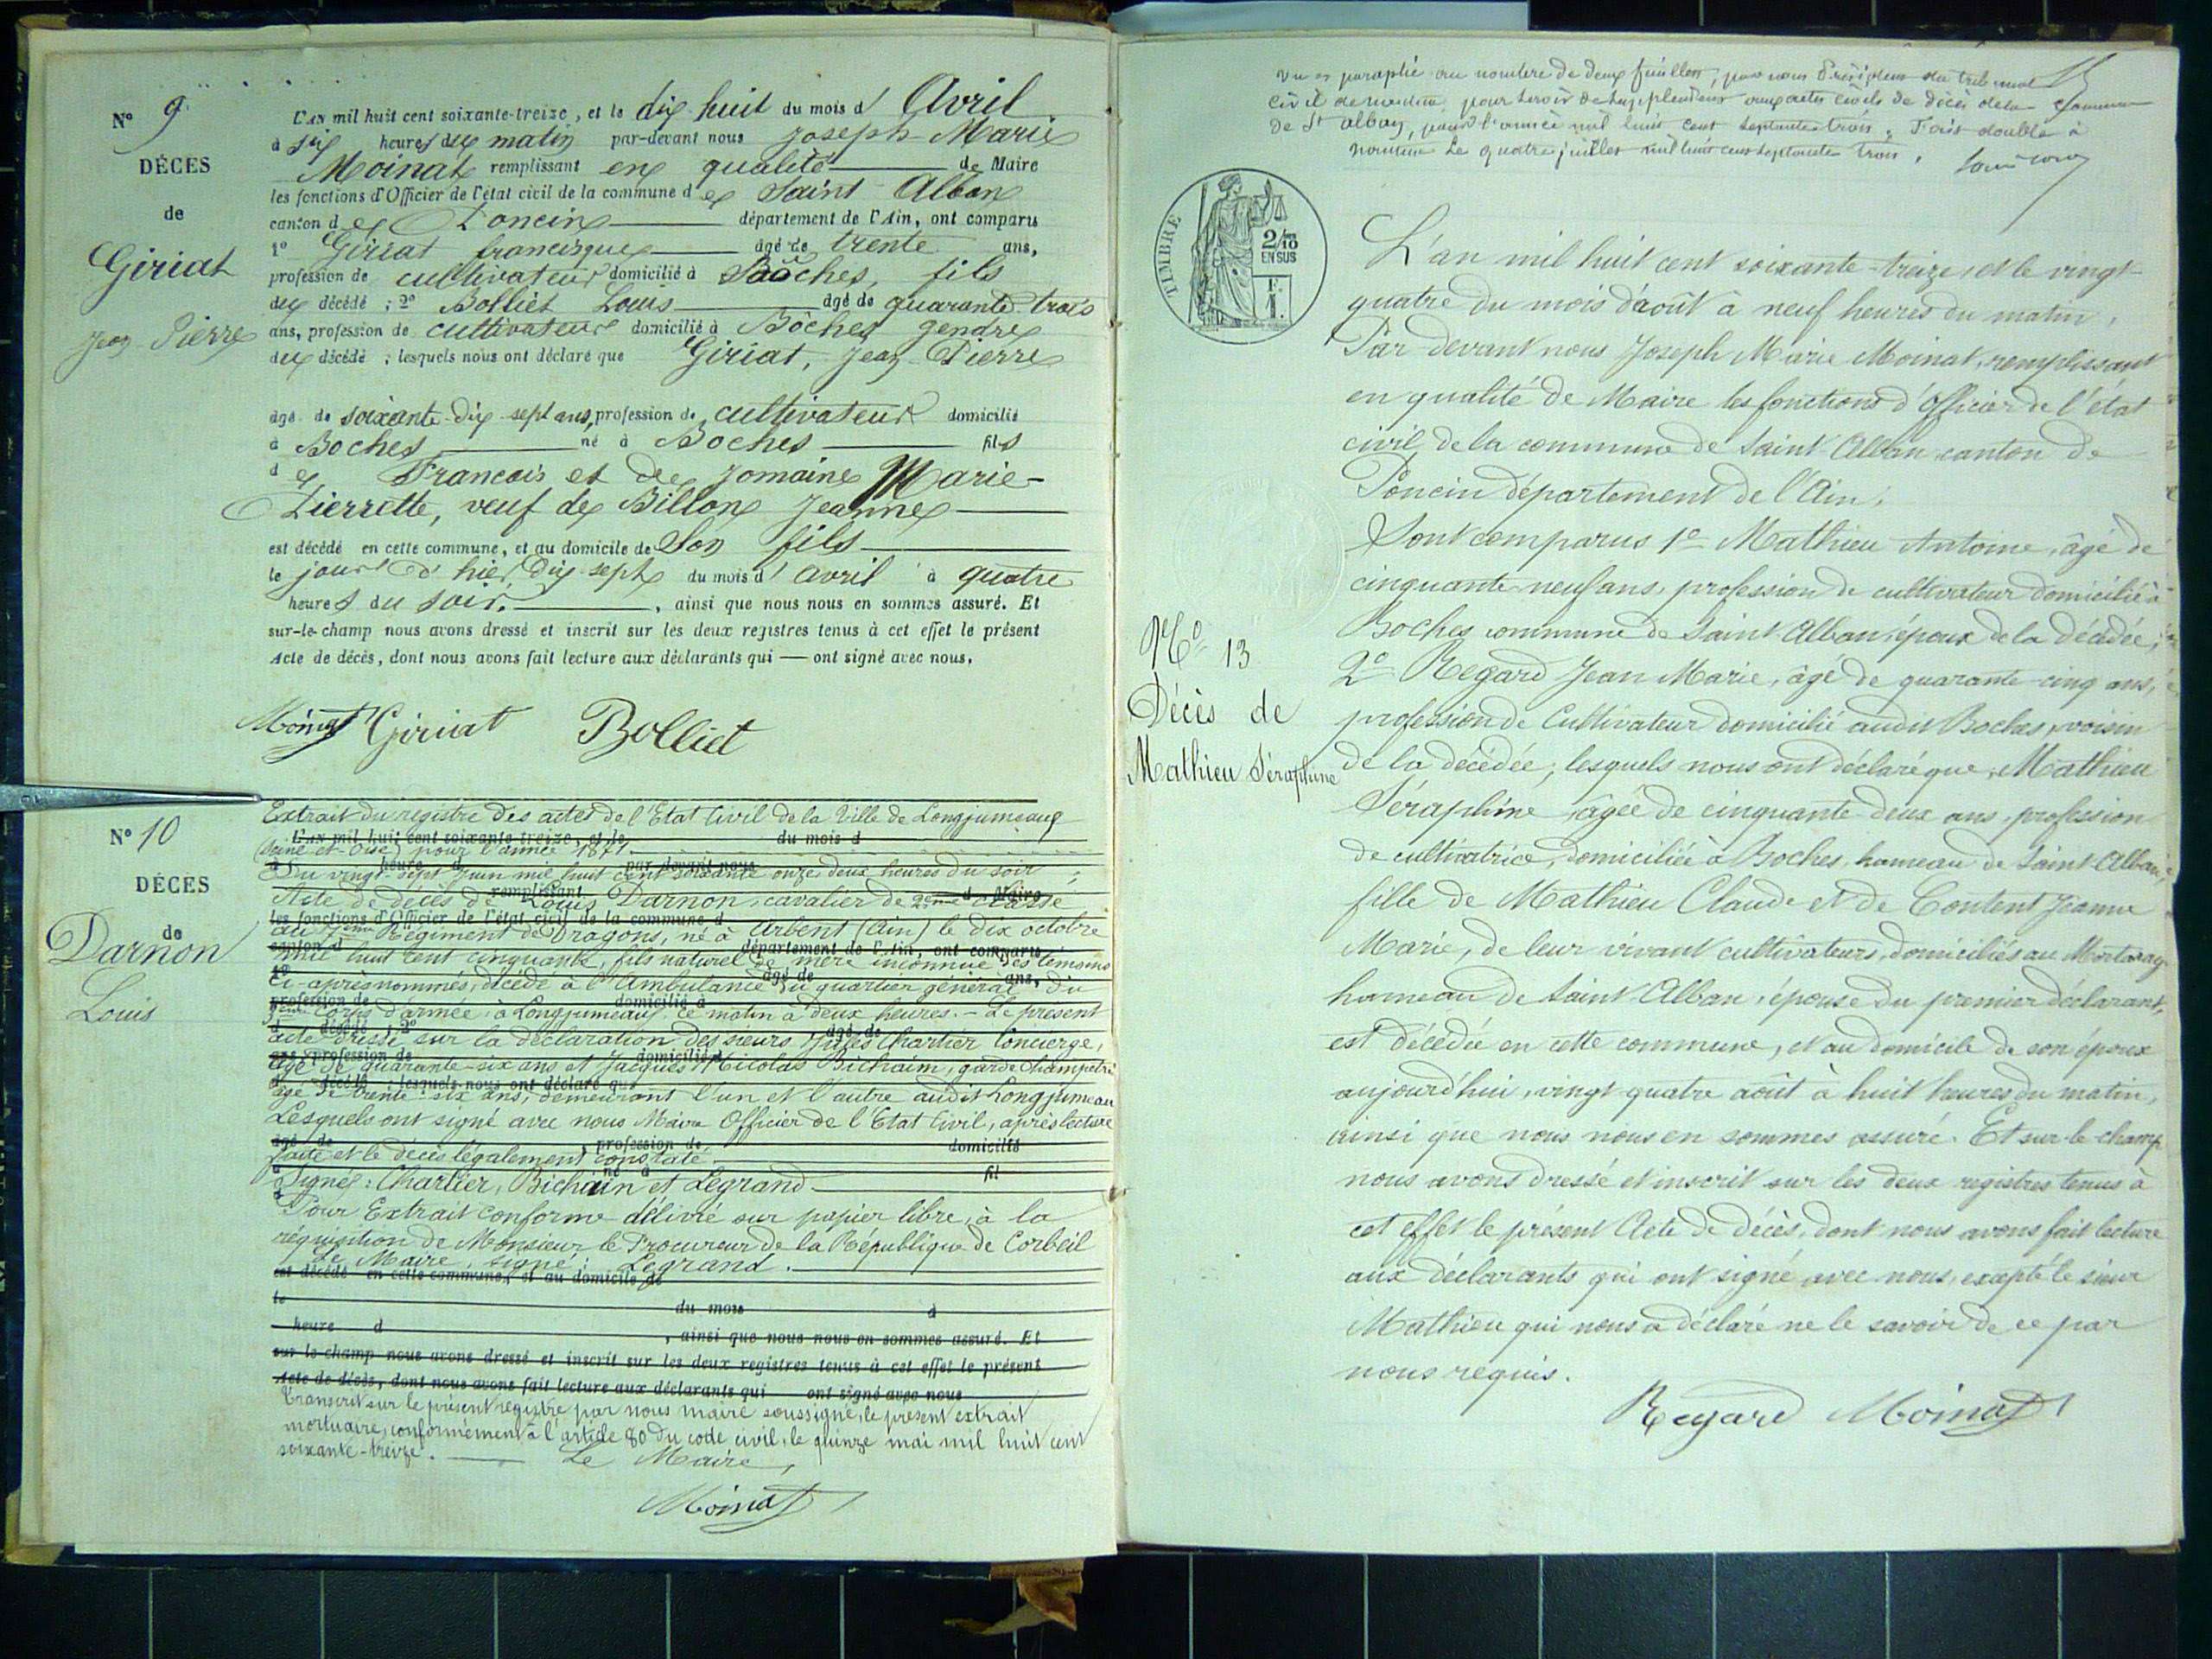 N° 9
DÉCES
de
Giriat
Jean Pierre
L'AN mil huit cent soixante-treize, et le dix huit du mois d' Avril
à six heures du matin par-devant nous Joseph Marie
Moinat remplissant en qualité de Maire
les fonctions d'Officier de l'état civil de la commune de Saint Alban
canton de Poncin département de l'Ain, ont comparu
1° Giriat francisque âgé de trente ans,
profession de cultivateur domicilié à Boches, fils
du décédé ; 2° Bolliet Louis âgé de quarante trois
ans, profession de cultivateur domicilié à Bôches gendre
du décédé ; lesquels nous ont déclaré que Giriat, Jean Pierre
âgé de soixante-dix-sept ans, profession de cultivateur domicilié
à Boches né à Boches fils
de Francois et de Jomaine Marie-
Pierrette, veuf de Billon Jeanne
est décédé en cette commune, et au domicile de Son fils
le jour d'hier, dix sept du mois d' avril à quatre
heures du soir. , ainsi que nous nous en sommes assuré. Et
sur-le-champ nous avons dressé et inscrit sur les deux registres tenus à cet effet le présent
Acte de décès, dont nous avons fait lecture aux déclarants qui — ont signé avec nous,
Moinat Giriat Bolliet
N° 10
DÉCES
de
Darnon
Louis
Extrait du registre des actes de l'Etat Civil de la Ville de Longjumeau
L'AN mil huit cent soixante-treize, et le du mois d
(Seine-et-Oise) pour l'année 1871.
à heure d par-devant nous
Du vingt-sept Juin mil huit cent soixante onze deux heures du soir ;
remplissant d Maire
Acte de décès de Louis Darnon, cavalier de 2eme Classe
les fonctions d'Officier de l'état civil de la commune d
au 7eme Régiment de Dragons, né à Arbent (Ain) le dix octobre
canton d département de l'Ain, ont comparu
mil huit cent cinquante, fils naturel de mère inconnue des témoins
1° âgé de ans,
ci-après nommés, décédé à l'Ambulance du quartier général du
profession de domicilié à
Corps d'armée, à Longjumeau, ce matin à deux heures. - Le présent
d décédé ; 2° âgé de
acte dressé sur la déclaration des sieurs Jules Chartier Concierge,
ans, profession de domicilié à
âgé de quarante-six ans et Jacques Nicolas Bichain, garde Champetre
d décédé ; lesquels nous ont déclaré que
âgé de trente-six ans, demeurant l'un et l'autre audit Longjumeau
Lesquels ont signé avec nous Maire Officier de l'Etat Civil, après lecture
âgé de profession de domicilié
faite et le décès légalement constaté.
à né à fil
Signé : Chartier, Bichain et Legrand.
d
Pour Extrait conforme délivré sur papier libre, à la
réquisition de Monsieur le Procureur de la République de Corbeil
Le Maire, signé : Legrand.
est décédé en cette commune, et au domicile de
le du mois à
heure d , ainsi que nous nous en sommes assuré. Et
sur-le-champ nous avons dressé et inscrit sur les deux registres tenus à cet effet le présent
Acte de décès, dont nous avons fait lecture aux déclarants qui ont signé avec nous
Transcrit sur le présent registre par nous maire soussigné, le présent extrait
mortuaire, conformément à l'article 80 du code civil, le quinze mai mil huit cent
soixante-treize. Le Maire,
Moinat
Vu et paraphé au nombre de deux feuillets, par nous Président du tribunal
Civil de nantua pour servir de supplement aux actes civils de décès de la Commune
de St alban, pour l'année mil huit cent septante trois. Fait double à
nantua Le quatre juillet mil huit cent septante trois.
TIMBRE
2/10
EN SUS
F.
1.
L'an mil huit cent soixante-treize, et le vingt-
quatre du mois d'août à neuf heures du matin,
Par devant nous Joseph Marie Moinat, remplissant
en qualité de Maire les fonctions d'Officier de l'état
civil de la commune de Saint-Alban canton de
Poncin département de l'Ain,
Sont comparus 1° Mathieu Antoine, âgé de
cinquante-neuf ans, profession de cultivateur domicilié à
Boches commune de Saint Alban, époux de la décédée ;
N° 13
Décès de
Mathieu Séraphine
2° Regard Jean Marie, âgé de quarante-cinq ans,
profession de Cultivateur domicilié audit Boches, voisin
de la décédée ; lesquels nous ont déclaré que, Mathieu
Séraphine, âgée de cinquante deux ans, profession
de cultivatrice, domiciliée à Boches, hameau de Saint-Alban,
fille de Mathieu Claude et de Content Jeanne
Marie, de leur vivant cultivateurs, domiciliés au Mortaray
hameau de Saint-Alban, épouse du premier déclarant,
est décédée en cette commune, et au domicile de son époux
aujourd'hui, vingt-quatre août à huit heures du matin,
ainsi que nous nous en sommes assuré. Et sur-le-champ
nous avons dressé et inscrit sur les deux registres tenus à
cet effet le présent Acte de décès, dont nous avons fait lecture
aux déclarants qui ont signé avec nous, excepté le sieur
Mathieu qui nous a déclaré ne le savoir de ce par
nous requis.
Regard Moinat